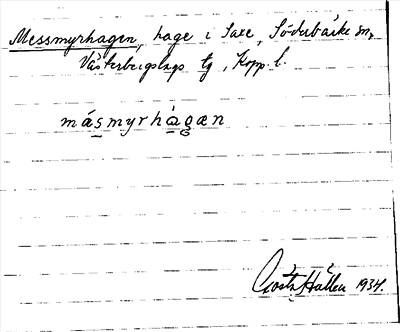 Messmyrhagen, hage i Saxe, Söderbärke sn,
Västerbergslags tg, Kopp. l.
másmyrhàgæn
Gösta Hallén 1934.